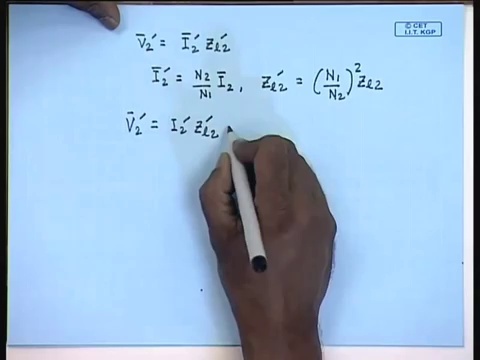 © CET
I.I.T. KGP
V̄₂′ = Ī₂′ Z̄ₗ₂′
Ī₂′ = N₂/N₁ Ī₂, Zₗ₂′ = (N₁/N₂)² Zₗ₂
V̄₂′ = I₂′ Z̄ₗ₂′